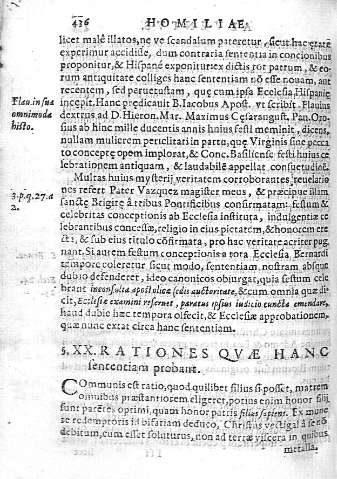 436 HOMILIAE
licet malè illatos, ne ve scandalum pateretur, sicut hac ętate
experimur accidisse, dum contraria sententia in concionibus
proponitur, & Hispanè exponitur ex dictis tot patrum, & eorum
antiquitate colliges hanc sententiam nõ esse nouam, aut
recentem, sed peruetustam, que cum ipsa Ecclesia Hispanie
incepit. Hanc prędicauit B. Iacobus Apost. vt scribit Flauius
Flau. in sua
omnimoda
histo.
dextrus ad D. Hieron. Mar. Maximus Cęsaraugust. Pan. Orosius
ab hinc mille ducentis annis huius festi meminit, dicens,
nullam mulierem periclitari in partu, quę Virginis sine peccato
conceptę opem implorat, & Conc. Basiliense festi huius celebrationem
antiquam, & laudabilē appellat consuetudinē.
Multas huius mysterij veritatem corroborantes, reuelationes
refert Pater Vazquez magister meus, & pręcipuè illam
3. p. q. 27. a
2.
sanctę Brigitę à tribus Pontificibus confirmatam: festum &
celebritas conceptionis ab Ecclesia instituta, indulgentię celebrantibus
concessę, religio in eius pietatem, & honorem
& sub eius titulo cõfirmata, pro hac veritate acriter pugnant.
Si autem festum conceptionis a tota Ecclesia, Bernardi
tempore coleretur sicut modo, sententiam nostram absque
dubio defenderet, ideo canonicos obiurgat, quia festum celebrant
inconsulta apostolica sedis auctoritate, & cum omnia quę dicit,
Ecclesiæ examini reseruet, paratus ipsius iudicio cuncta emendare,
haud dubie hæc tempora olfecit, & Ecclesiæ approbationem,
quæ nunc extat circa hanc sententiam.
§. XX. RATIONES QVÆ HANC
sententiam probant.
Communis est ratio, quod quilibet filius si posset, matrem
omnibus pręstantiorem eligeret, potius enim honor filij
sunt parētes optimi, quam honor patris filius sapiens. Ex munere
redemptoris id bifariam deduco, Christus vectigal à se nõ
debitum, cum esset soluturus, non ad terræ viscera in quibus
metalla.